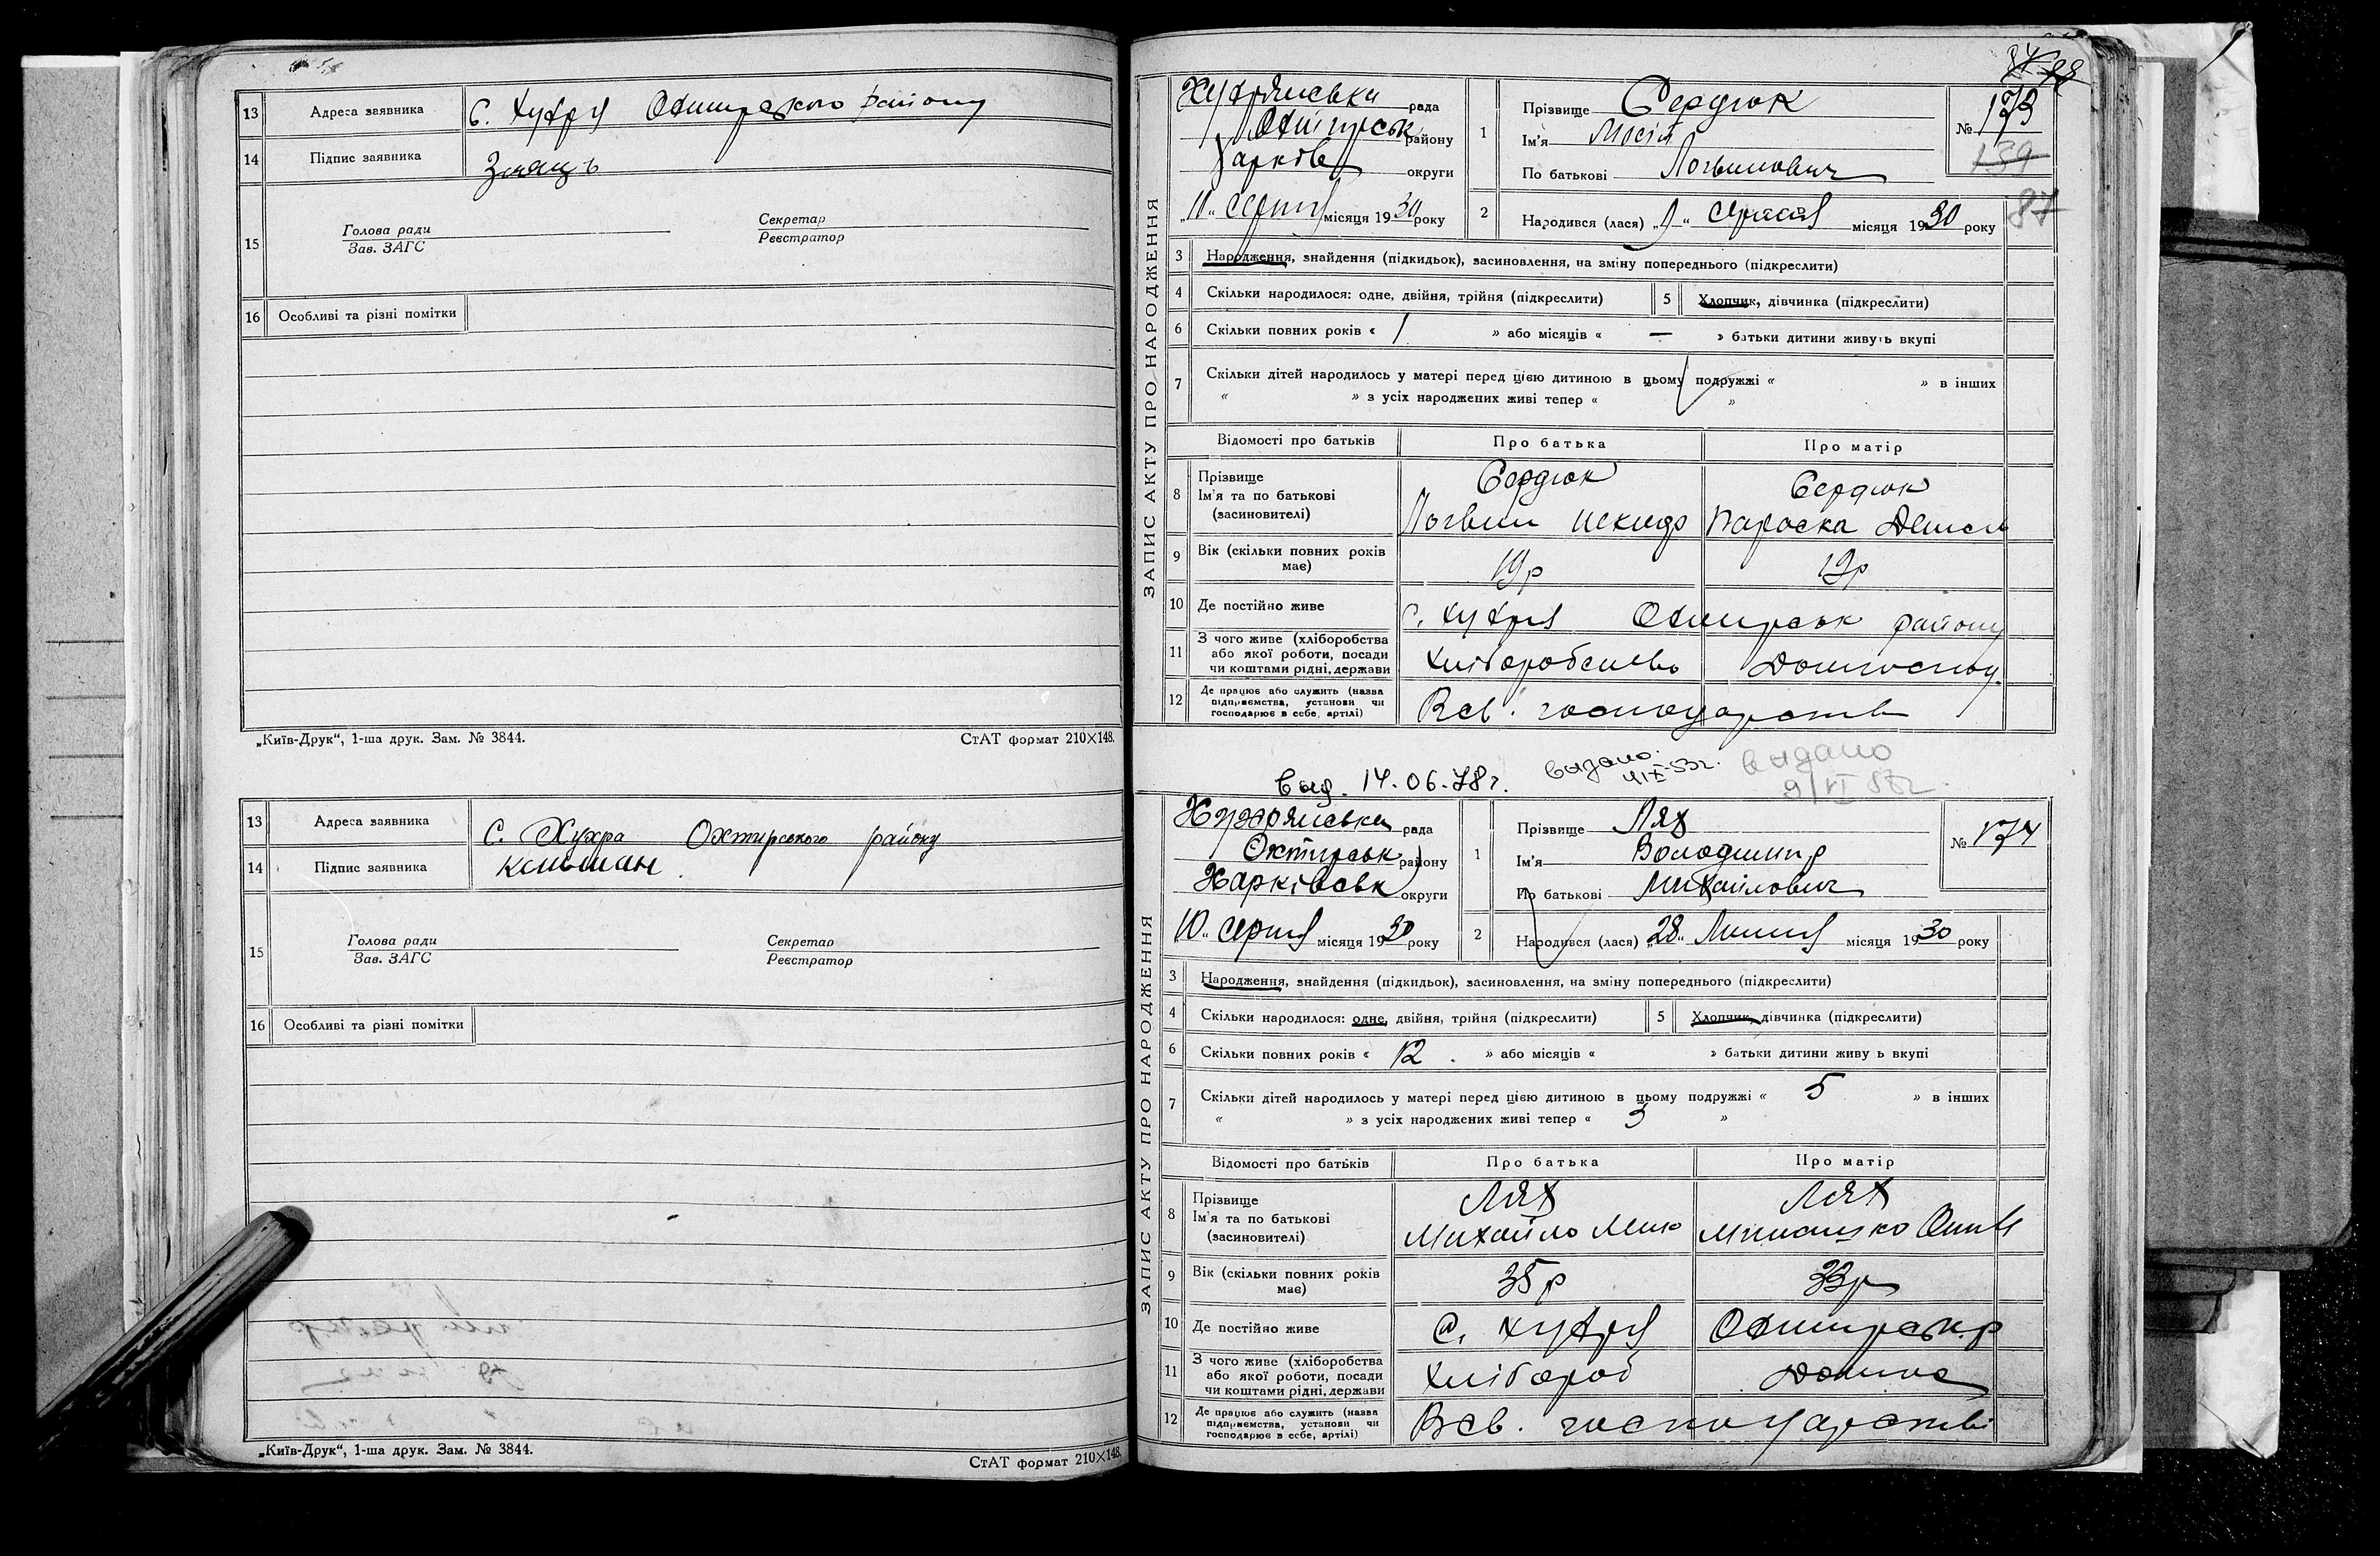 13 Адреса заявника с. Хухря Охтирського району
14 Підпис заявника
15 Голова ради Секретар
Зав. ЗАГС Реєстратор
16 Особливі та різні помітки
„Київ-Друк“, 1-ша друк. Зам. № 3844. СтАТ формат 210×148.
13 Адреса заявника с. Хухра Охтирського району
14 Підпис заявника
15 Голова ради Секретар
Зав. ЗАГС Реєстратор
16 Особливі та різні помітки
„Київ-Друк“, 1-ша друк. Зам. № 3844. СтАТ формат 210×148.
ЗАПИС АКТУ ПРО НАРОДЖЕННЯ
Хухрянська рада
Охтирськ району
Харків округи
„10“ Серпня місяця 1930 року
1 Прізвище Сердюк
Ім'я Мосій
По батькові Логвинович
№ 173
159
87
2 Народився (лася) „1“ Серпня місяця 1930 року
3 Народження, знайдення (підкидьок), засиновлення, на зміну попереднього (підкреслити)
4 Скільки народилося: одне, двійня, трійня (підкреслити) 5 Хлопчик, дівчинка (підкреслити)
6 Скільки повних років « 1 » або місяців « — » батьки дитини живуть вкупі
7 Скільки дітей народилось у матері перед цією дитиною в цьому подружжі « » в інших
« » з усіх народжених живі тепер « »
Відомості про батьків Про батька Про матір
8 Прізвище Сердюк Сердюк
Ім'я та по батькові
(засиновителі) Логвин Параска
9 Вік (скільки повних років має) 19р 19р
10 Де постійно живе с. Хухря Охтирськ району
11 З чого живе (хліборобства або якої роботи, посади чи коштами рідні, держави Хліборобство Домогосп.
12 Де працює або служить (назва підприємства, установи чи господарює в себе, артілі) В св. господарстві
Выд. 14.06.78г. Выдано 53г. Выдано
9/VI 87г.
ЗАПИС АКТУ ПРО НАРОДЖЕННЯ
Хухрянська рада
Охтирськ району
Харківськ округи
„10“ Серпня місяця 1930 року
1 Прізвище Лях
Ім'я Володимир
По батькові Михайлович
№ 174
2 Народився (лася) „28“ Липня місяця 1930 року
3 Народження, знайдення (підкидьок), засиновлення, на зміну попереднього (підкреслити)
4 Скільки народилося: одне, двійня, трійня (підкреслити) 5 Хлопчик, дівчинка (підкреслити)
6 Скільки повних років « 12 » або місяців « » батьки дитини живу ь вкупі
7 Скільки дітей народилось у матері перед цією дитиною в цьому подружжі « 5 » в інших
« » з усіх народжених живі тепер « 3 »
Відомості про батьків Про батька Про матір
8 Прізвище Лях Лях
Ім'я та по батькові
(засиновителі) Михайло Мик
9 Вік (скільки повних років має) 35р 33р
10 Де постійно живе с. Хухря Охтирськ. р
11 З чого живе (хліборобства або якої роботи, посади чи коштами рідні, держави Хлібороб Домаш
12 Де працює або служить (назва підприємства, установи чи господарює в себе, артілі) В св. господарстві